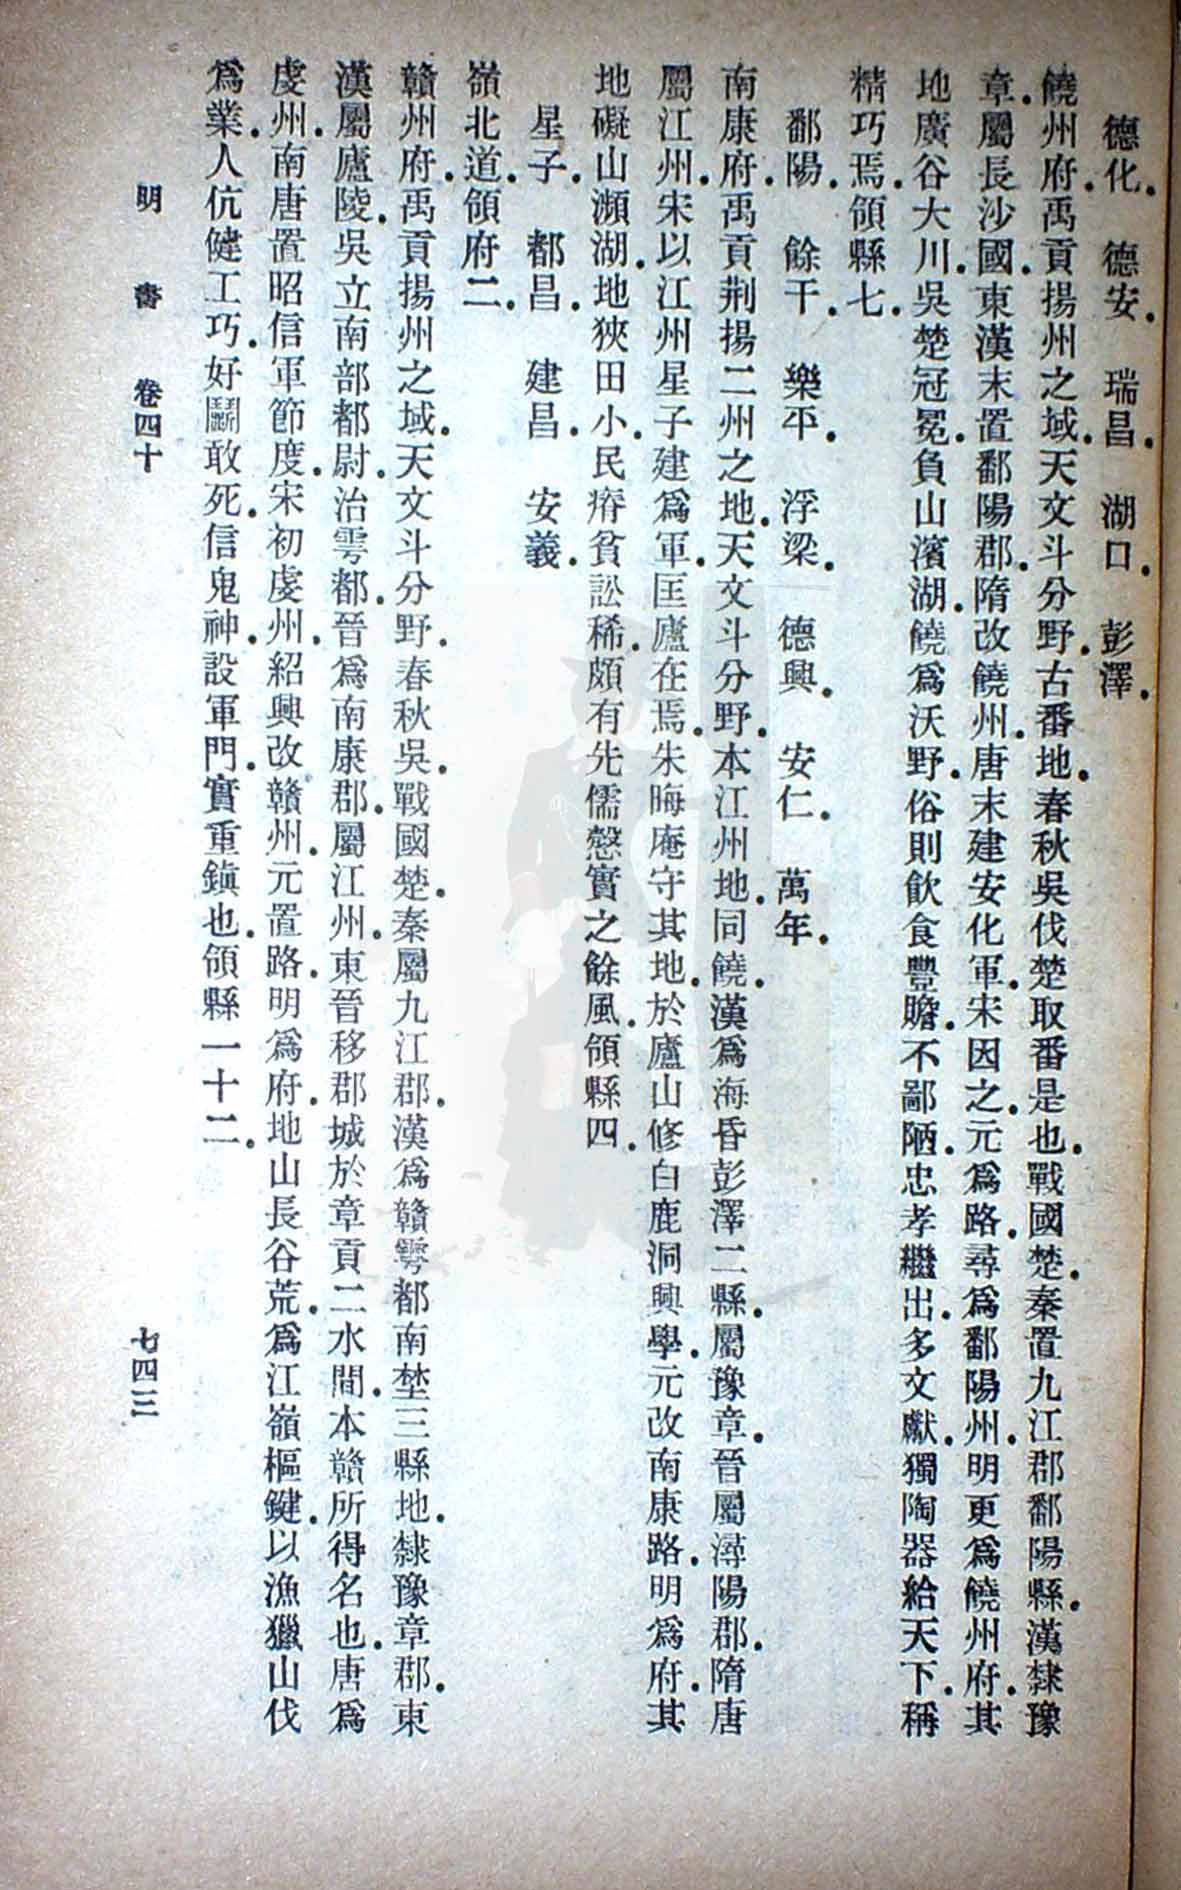 德化．德安．瑞昌．湖口．彭澤．
饒州府．禹貢揚州之域．天文斗分野．古番地．春秋吳伐楚取番是也．戰國楚．秦置九江郡鄱陽縣．漢隸豫
章．屬長沙國．東漢末置鄱陽郡．隋改饒州．唐末建安化軍．宋因之．元為路．尋為鄱陽州．明更為饒州府．其
地廣谷大川．吳楚冠冕．負山濱湖．饒為沃野．俗則飲食豐贍．不鄙陋．忠孝繼出．多文獻．獨陶器給天下．稱
精巧焉．領縣七．
鄱陽．餘干．樂平．浮梁．德興．安仁．萬年．
南康府．禹貢荆揚二州之地．天文斗分野．本江州地．同饒．漢為海昏彭澤二縣．屬豫章．晉屬潯陽郡．隋唐
屬江州．宋以江州星子建為軍．匡廬在焉．朱晦庵守其地．於廬山修白鹿洞興學．元改南康路．明為府．其
地礙山瀕湖．地狹田小．民瘠貧訟稀．頗有先儒慤實之餘風．領縣四．
星子．都昌．建昌．安義．
嶺北道．領府二．
贛州府．禹貢揚州之域．天文斗分野．春秋吳．戰國楚．秦屬九江郡．漢為贛雩都南埜三縣地．隸豫章郡．東
漢屬廬陵．吳立南部都尉．治雩都．晉為南康郡．屬江州．東晉移郡城於章貢二水間．本贛所得名也．唐為
虔州．南唐置昭信軍節度．宋初虔州．紹興改贛州．元置路．明為府．地山長谷荒．為江嶺樞鍵．以漁獵山伐
為業．人伉健工巧．好鬭敢死．信鬼神．設軍門．實重鎮也．領縣一十二．
明書 卷四十 七四三